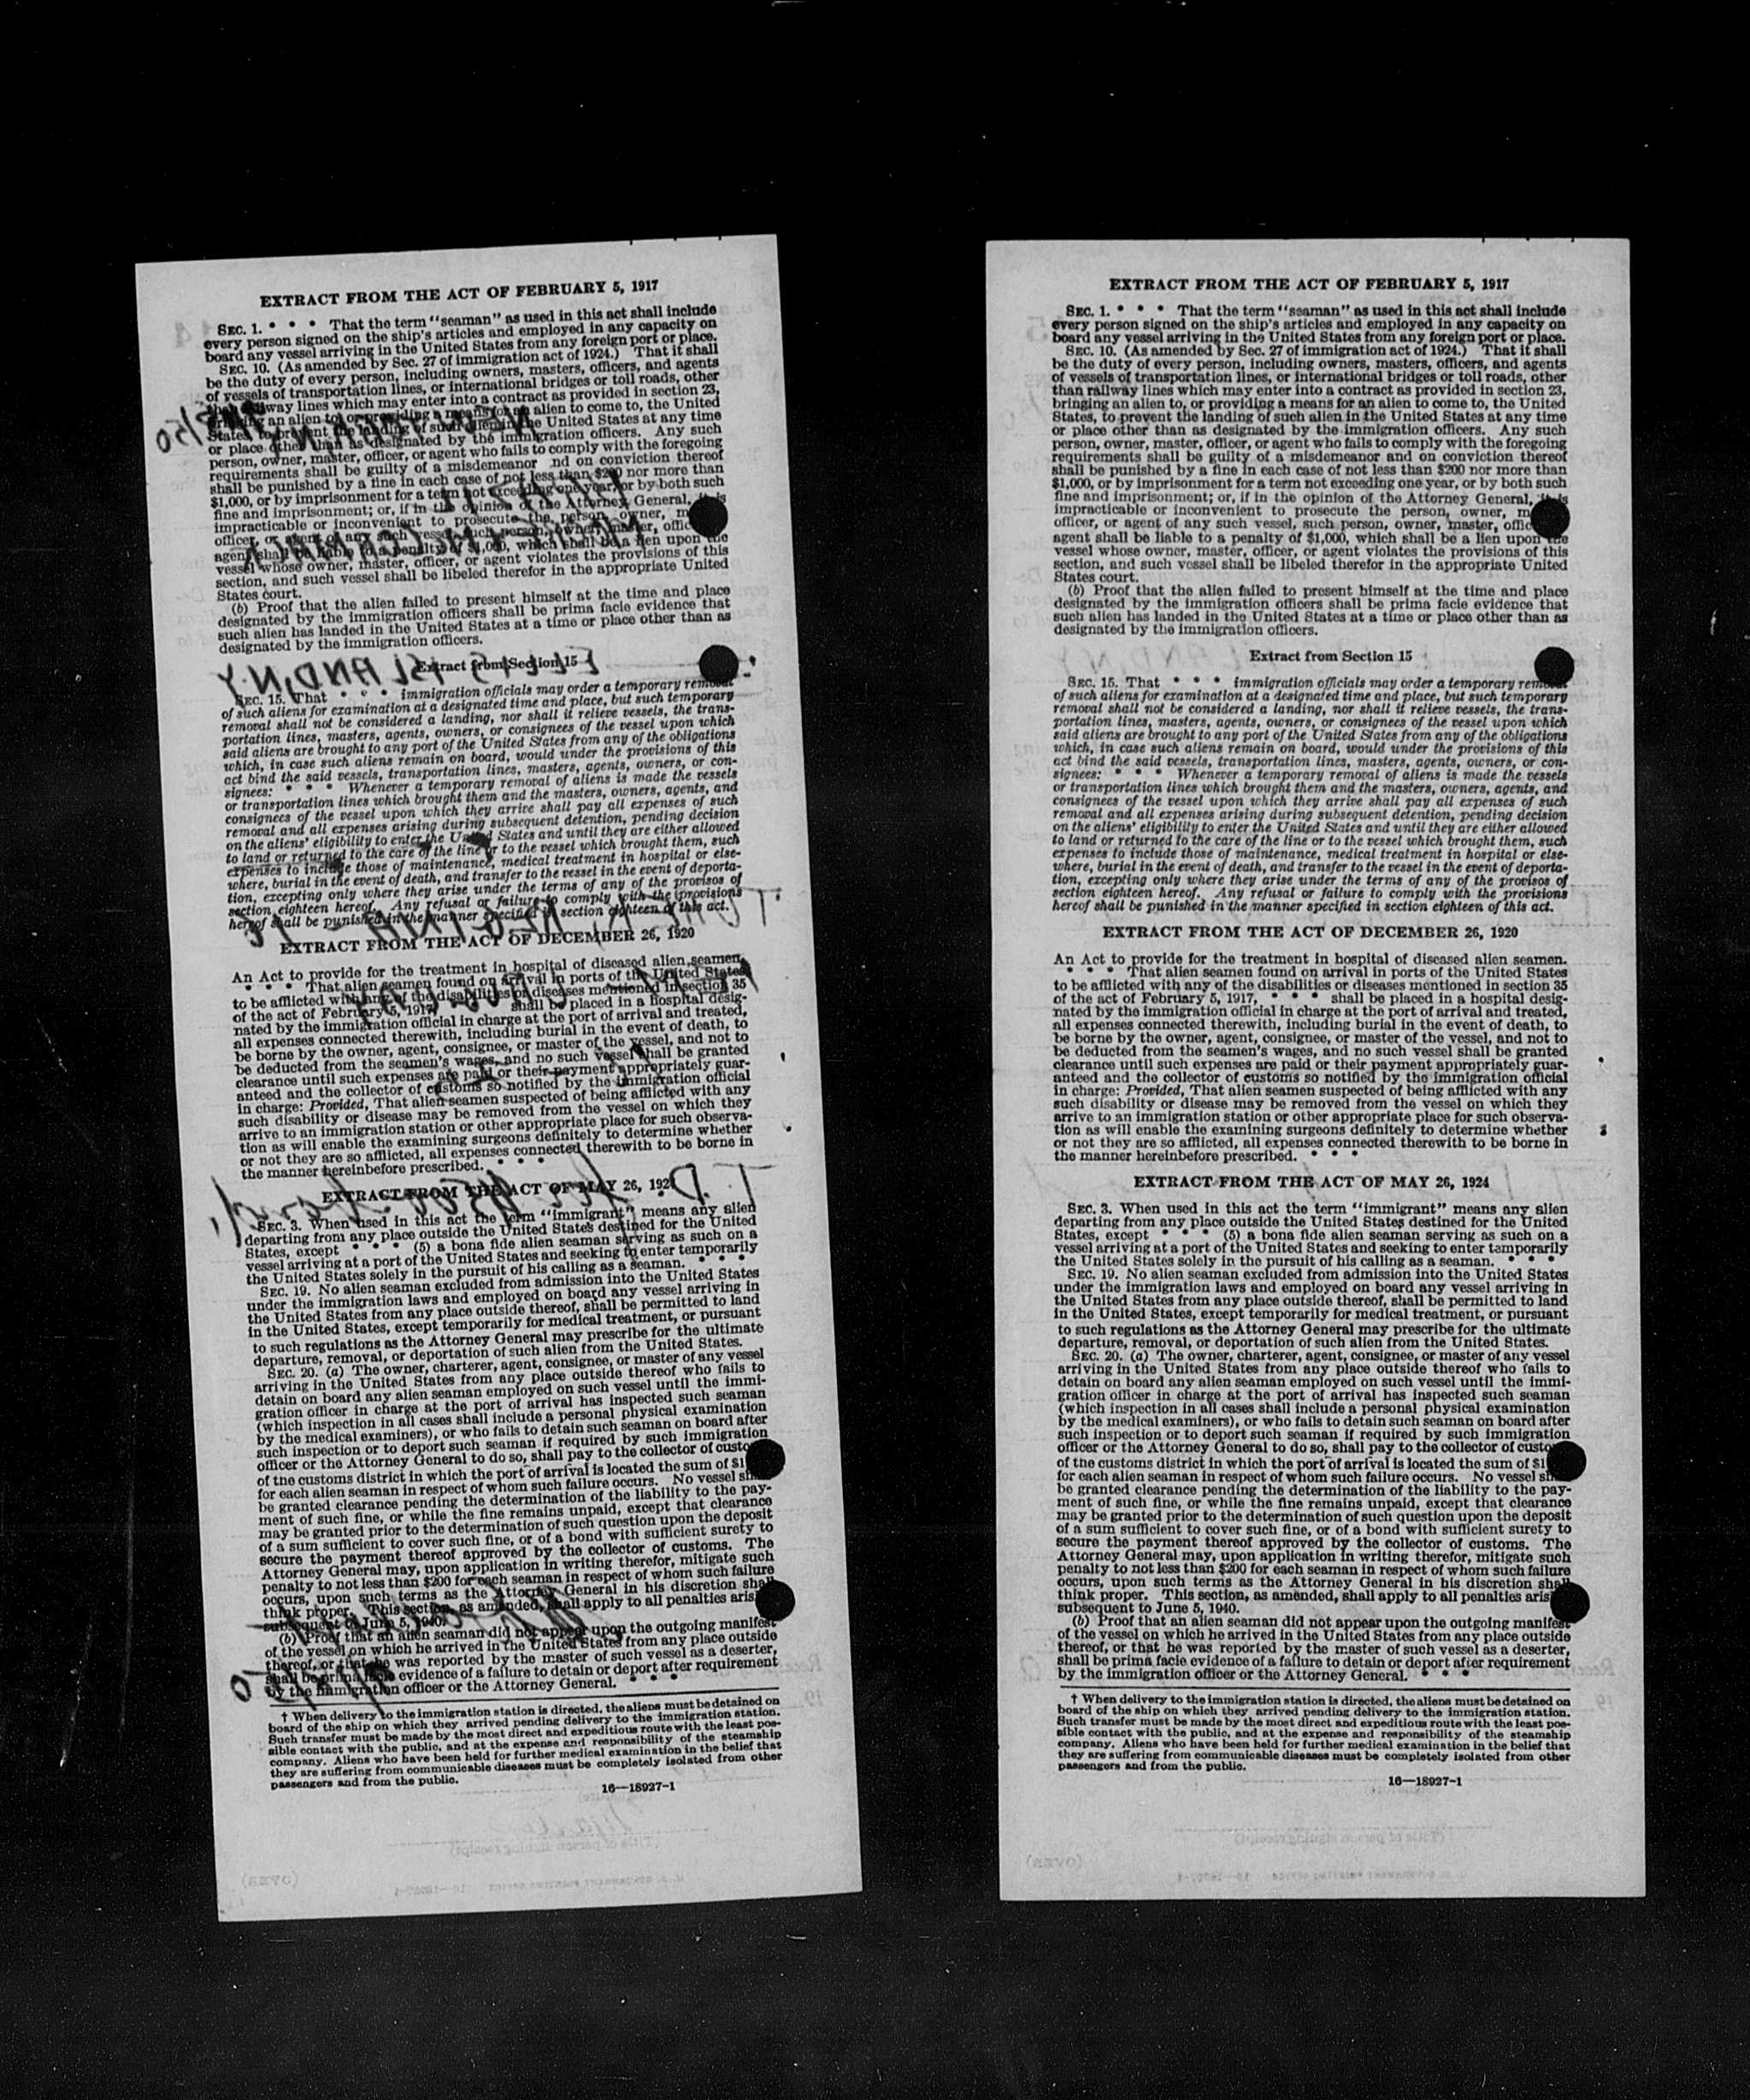 EXTRACT FROM THE ACT OF FEBRUARY 5, 1917
SEC. 1. * * * That the term "seaman" as used in this act shall include
every person signed on the ship's articles and employed in any capacity on
board any vessel arriving in the United States from any foreign port or place.
SEC. 10. (As amended by Sec. 27 of immigration act of 1924.) That it shall
be the duty of every person, including owners, masters, officers, and agents
of vessels of transportation lines, or international bridges or toll roads, other
railway lines which may enter into a contract as provided in section 23,
bringing an alien to, or providing a means for an alien to come to, the United
States, to prevent the landing of such alien in the United States at any time
or place other than as designated by the immigration officers. Any such
person, owner, master, officer, or agent who fails to comply with the foregoing
requirements shall be guilty of a misdemeanor nd on conviction thereof
shall be punished by a fine in each case of not less than $200 nor more than
$1,000, or by imprisonment for a term not exceeding one year, or by both such
fine and imprisonment; or, if in the opinion of the Attorney General, it is
impracticable or inconvenient to prosecute the person, owner, m
officer, or agent of any such vessel, such person, owner, master, offic
agent shall be liable to a penalty of $1,000, which shall be a lien upon the
vessel whose owner, master, officer, or agent violates the provisions of this
section, and such vessel shall be libeled therefor in the appropriate United
States court.
(b) Proof that the alien failed to present himself at the time and place
designated by the immigration officers shall be prima facie evidence that
such alien has landed in the United States at a time or place other than as
designated by the immigration officers.
Extract from Section 15
ELLIS ISLAND, N.Y
SEC. 15. That * * * immigration officials may order a temporary removal
of such aliens for examination at a designated time and place, but such temporary
removal shall not be considered a landing, nor shall it relieve vessels, the trans-
portation lines, masters, agents, owners, or consignees of the vessel upon which
said aliens are brought to any port of the United States from any of the obligations
which, in case such aliens remain on board, would under the provisions of this
act bind the said vessels, transportation lines, masters, agents, owners, or con-
signees: * * * Whenever a temporary removal of aliens is made the vessels
or transportation lines which brought them and the masters, owners, agents, and
consignees of the vessel upon which they arrive shall pay all expenses of such
removal and all expenses arising during subsequent detention, pending decision
on the aliens' eligibility to enter the United States and until they are either allowed
to land or returned to the care of the line or to the vessel which brought them, such
expenses to include those of maintenance, medical treatment in hospital or else-
where, burial in the event of death, and transfer to the vessel in the event of deporta-
tion, excepting only where they arise under the terms of any of the provisos of
section eighteen hereof. Any refusal or failure to comply with the provisions
hereof shall be punished in the manner specified in section eighteen of this act.
EXTRACT FROM THE ACT OF DECEMBER 26, 1920
An Act to provide for the treatment in hospital of diseased alien seamen.
* * * That alien seamen found on arrival in ports of the United States
to be afflicted with any of the disabilities or diseases mentioned in section 35
of the act of February 5, 1917, shall be placed in a hospital desig-
nated by the immigration official in charge at the port of arrival and treated,
all expenses connected therewith, including burial in the event of death, to
be borne by the owner, agent, consignee, or master of the vessel, and not to
be deducted from the seamen's wages, and no such vessel shall be granted
clearance until such expenses are paid or their payment appropriately guar-
anteed and the collector of customs so notified by the immigration official
in charge: Provided, That alien seamen suspected of being afflicted with any
such disability or disease may be removed from the vessel on which they
arrive to an immigration station or other appropriate place for such observa-
tion as will enable the examining surgeons definitely to determine whether
or not they are so afflicted, all expenses connected therewith to be borne in
the manner hereinbefore prescribed. * * *
EXTRACT FROM THE ACT OF MAY 26, 192
SEC. 3. When used in this act the term "immigrant" means any alien
departing from any place outside the United States destined for the United
States, except * * * (5) a bona fide alien seaman serving as such on a
vessel arriving at a port of the United States and seeking to enter temporarily
the United States solely in the pursuit of his calling as a seaman. * * *
SEC. 19. No alien seaman excluded from admission into the United States
under the immigration laws and employed on board any vessel arriving in
the United States from any place outside thereof, shall be permitted to land
in the United States, except temporarily for medical treatment, or pursuant
to such regulations as the Attorney General may prescribe for the ultimate
departure, removal, or deportation of such alien from the United States.
SEC. 20. (a) The owner, charterer, agent, consignee, or master of any vessel
arriving in the United States from any place outside thereof who fails to
detain on board any alien seaman employed on such vessel until the immi-
gration officer in charge at the port of arrival has inspected such seaman
(which inspection in all cases shall include a personal physical examination
by the medical examiners), or who fails to detain such seaman on board after
such inspection or to deport such seaman if required by such immigration
officer or the Attorney General to do so, shall pay to the collector of custo
of the customs district in which the port of arrival is located the sum of $1
for each alien seaman in respect of whom such failure occurs. No vessel sh
be granted clearance pending the determination of the liability to the pay-
ment of such fine, or while the fine remains unpaid, except that clearance
may be granted prior to the determination of such question upon the deposit
of a sum sufficient to cover such fine, or of a bond with sufficient surety to
secure the payment thereof approved by the collector of customs. The
Attorney General may, upon application in writing therefor, mitigate such
penalty to not less than $200 for each seaman in respect of whom such failure
occurs, upon such terms as the Attorney General in his discretion shall
think proper. This section, as amended, shall apply to all penalties aris
subsequent to June 5, 1940.
(b) Proof that an alien seaman did not appear upon the outgoing manifest
of the vessel on which he arrived in the United States from any place outside
thereof, or that he was reported by the master of such vessel as a deserter,
shall be prima facie evidence of a failure to detain or deport after requirement
by the immigration officer or the Attorney General. * * *
† When delivery to the immigration station is directed, the aliens must be detained on
board of the ship on which they arrived pending delivery to the immigration station.
Such transfer must be made by the most direct and expeditious route with the least pos-
sible contact with the public, and at the expense and responsibility of the steamship
company. Aliens who have been held for further medical examination in the belief that
they are suffering from communicable diseases must be completely isolated from other
passengers and from the public.
16—18927-1
(OVER)
EXTRACT FROM THE ACT OF FEBRUARY 5, 1917
SEC. 1. * * * That the term "seaman" as used in this act shall include
every person signed on the ship's articles and employed in any capacity on
board any vessel arriving in the United States from any foreign port or place.
SEC. 10. (As amended by Sec. 27 of immigration act of 1924.) That it shall
be the duty of every person, including owners, masters, officers, and agents
of vessels of transportation lines, or international bridges or toll roads, other
than railway lines which may enter into a contract as provided in section 23,
bringing an alien to, or providing a means for an alien to come to, the United
States, to prevent the landing of such alien in the United States at any time
or place other than as designated by the immigration officers. Any such
person, owner, master, officer, or agent who fails to comply with the foregoing
requirements shall be guilty of a misdemeanor and on conviction thereof
shall be punished by a fine in each case of not less than $200 nor more than
$1,000, or by imprisonment for a term not exceeding one year, or by both such
fine and imprisonment; or, if in the opinion of the Attorney General, it is
impracticable or inconvenient to prosecute the person, owner, m
officer, or agent of any such vessel, such person, owner, master, offic
agent shall be liable to a penalty of $1,000, which shall be a lien upon the
vessel whose owner, master, officer, or agent violates the provisions of this
section, and such vessel shall be libeled therefor in the appropriate United
States court.
(b) Proof that the alien failed to present himself at the time and place
designated by the immigration officers shall be prima facie evidence that
such alien has landed in the United States at a time or place other than as
designated by the immigration officers.
Extract from Section 15
SEC. 15. That * * * immigration officials may order a temporary removal
of such aliens for examination at a designated time and place, but such temporary
removal shall not be considered a landing, nor shall it relieve vessels, the trans-
portation lines, masters, agents, owners, or consignees of the vessel upon which
said aliens are brought to any port of the United States from any of the obligations
which, in case such aliens remain on board, would under the provisions of this
act bind the said vessels, transportation lines, masters, agents, owners, or con-
signees: * * * Whenever a temporary removal of aliens is made the vessels
or transportation lines which brought them and the masters, owners, agents, and
consignees of the vessel upon which they arrive shall pay all expenses of such
removal and all expenses arising during subsequent detention, pending decision
on the aliens' eligibility to enter the United States and until they are either allowed
to land or returned to the care of the line or to the vessel which brought them, such
expenses to include those of maintenance, medical treatment in hospital or else-
where, burial in the event of death, and transfer to the vessel in the event of deporta-
tion, excepting only where they arise under the terms of any of the provisos of
section eighteen hereof. Any refusal or failure to comply with the provisions
hereof shall be punished in the manner specified in section eighteen of this act.
EXTRACT FROM THE ACT OF DECEMBER 26, 1920
An Act to provide for the treatment in hospital of diseased alien seamen.
* * * * That alien seamen found on arrival in ports of the United States
to be afflicted with any of the disabilities or diseases mentioned in section 35
of the act of February 5, 1917, * * * shall be placed in a hospital desig-
nated by the immigration official in charge at the port of arrival and treated,
all expenses connected therewith, including burial in the event of death, to
be borne by the owner, agent, consignee, or master of the vessel, and not to
be deducted from the seamen's wages, and no such vessel shall be granted
clearance until such expenses are paid or their payment appropriately guar-
anteed and the collector of customs so notified by the immigration official
in charge: Provided, That alien seamen suspected of being afflicted with any
such disability or disease may be removed from the vessel on which they
arrive to an immigration station or other appropriate place for such observa-
tion as will enable the examining surgeons definitely to determine whether
or not they are so afflicted, all expenses connected therewith to be borne in
the manner hereinbefore prescribed. * * *
EXTRACT FROM THE ACT OF MAY 26, 1924
SEC. 3. When used in this act the term "immigrant" means any alien
departing from any place outside the United States destined for the United
States, except * * * (5) a bona fide alien seaman serving as such on a
vessel arriving at a port of the United States and seeking to enter temporarily
the United States solely in the pursuit of his calling as a seaman. * * *
SEC. 19. No alien seaman excluded from admission into the United States
under the immigration laws and employed on board any vessel arriving in
the United States from any place outside thereof, shall be permitted to land
in the United States, except temporarily for medical treatment, or pursuant
to such regulations as the Attorney General may prescribe for the ultimate
departure, removal, or deportation of such alien from the United States.
SEC. 20. (a) The owner, charterer, agent, consignee, or master of any vessel
arriving in the United States from any place outside thereof who fails to
detain on board any alien seaman employed on such vessel until the immi-
gration officer in charge at the port of arrival has inspected such seaman
(which inspection in all cases shall include a personal physical examination
by the medical examiners), or who fails to detain such seaman on board after
such inspection or to deport such seaman if required by such immigration
officer or the Attorney General to do so, shall pay to the collector of custo
of the customs district in which the port of arrival is located the sum of $1
for each alien seaman in respect of whom such failure occurs. No vessel sh
be granted clearance pending the determination of the liability to the pay-
ment of such fine, or while the fine remains unpaid, except that clearance
may be granted prior to the determination of such question upon the deposit
of a sum sufficient to cover such fine, or of a bond with sufficient surety to
secure the payment thereof approved by the collector of customs. The
Attorney General may, upon application in writing therefor, mitigate such
penalty to not less than $200 for each seaman in respect of whom such failure
occurs, upon such terms as the Attorney General in his discretion shall
think proper. This section, as amended, shall apply to all penalties aris
subsequent to June 5, 1940.
(b) Proof that an alien seaman did not appear upon the outgoing manifest
of the vessel on which he arrived in the United States from any place outside
thereof, or that he was reported by the master of such vessel as a deserter,
shall be prima facie evidence of a failure to detain or deport after requirement
by the immigration officer or the Attorney General. * * *
† When delivery to the immigration station is directed, the aliens must be detained on
board of the ship on which they arrived pending delivery to the immigration station.
Such transfer must be made by the most direct and expeditious route with the least pos-
sible contact with the public, and at the expense and responsibility of the steamship
company. Aliens who have been held for further medical examination in the belief that
they are suffering from communicable diseases must be completely isolated from other
passengers and from the public.
16—18927-1
(OVER)